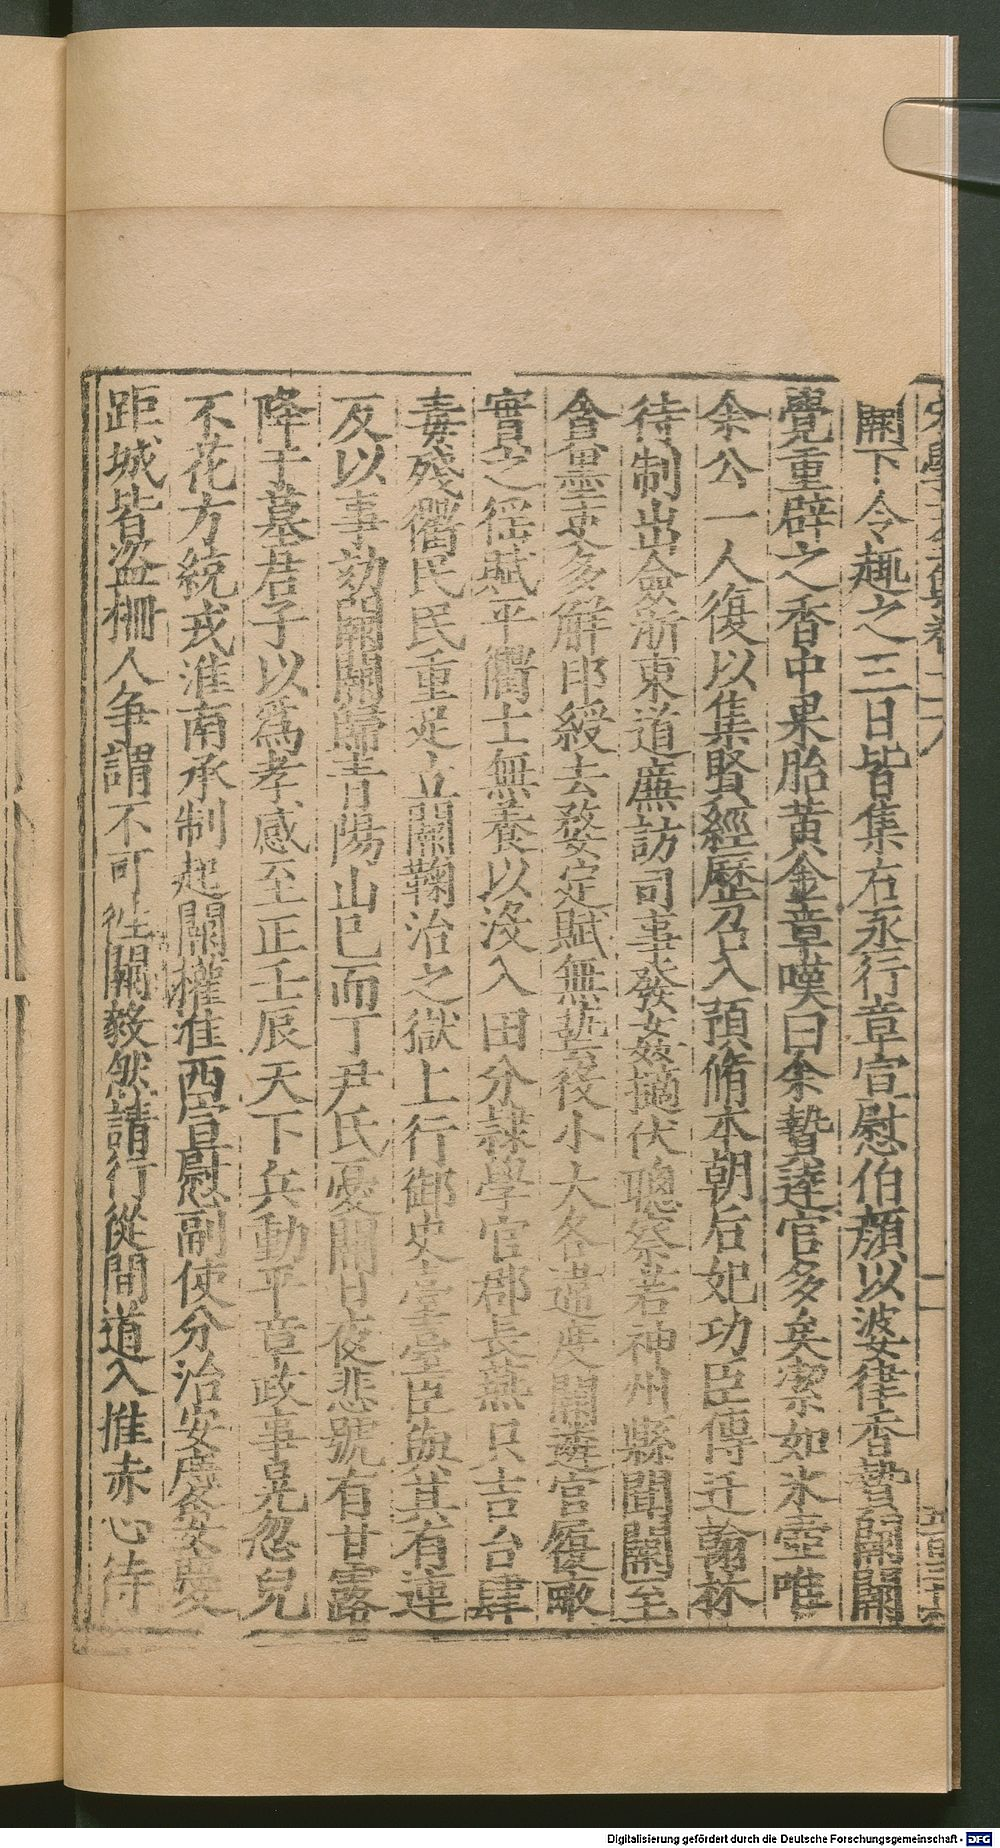 宋學士文集卷二十八
闕下令趣之三日皆集右丞行章宣慰伯顔以婆律香贄闕闕
覺重辟之香中果胎黃金章嘆曰余贄達官多矣潔如氷壺唯
余公一人復以集賢經歷召入預脩本朝后妃功臣傳迁翰林
待制出僉浙東道廉訪司事發姦擿伏聰察若神州縣聞闕至
貪墨吏多解印綬去婺定賦無藝役小大各違度闕遴官履畝
實之徭賦平衢士無養以沒入田分隷學官郡長燕只吉台肆
毒殘衢民民重足立闕鞠治之獄上行御史臺臺臣與其有連
反以事劾闕闕歸青陽山已而丁尹氏憂闕日夜悲號有甘露
降于墓君子以爲孝感至正壬辰天下兵動平章政事晃忽兒
不花方統戎淮南承制起闕權淮西宣慰副使分治安慶安慶
距城皆盜栅人争謂不可徃闕毅然請行從間道入推赤心待
二
Digitalisierung gefördert durch die Deutsche Forschungsgemeinschaft - DFG